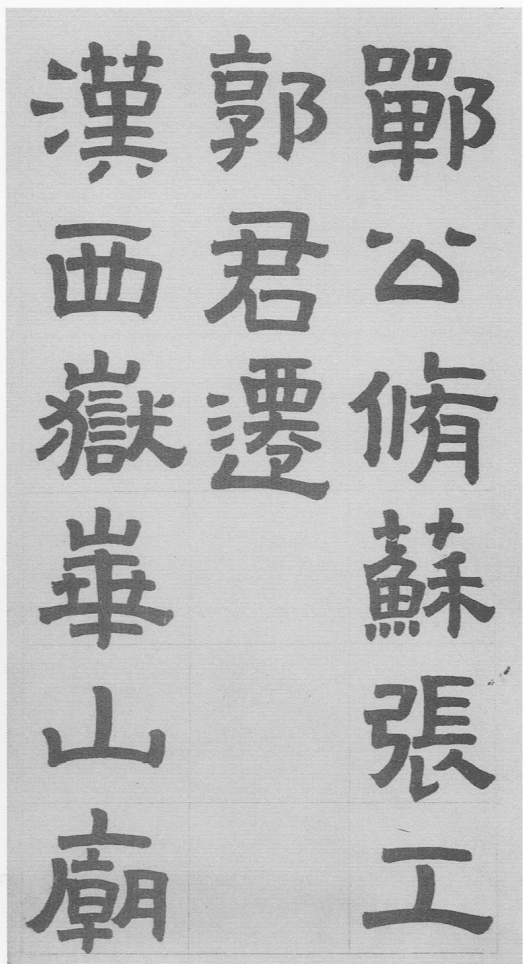 鄲公脩蘇張工
郭君遷
漢西嶽崋山廟